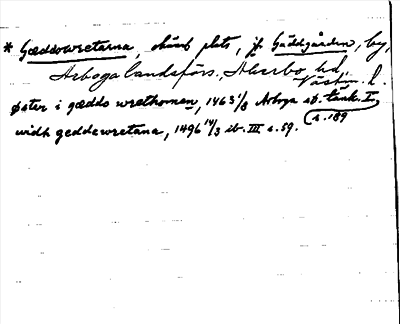 * Gæddowretarna, okänd plats, jf. Gäddgården, by,
Arboga landsförs., Åkerbo hd
Västm. l.
Øster i gæddo wrethomen, 1463 1/8 Arboga sd. tänk. I,
s. 189
widh geddewretana, 1496 14/3 ib. III s. 59.